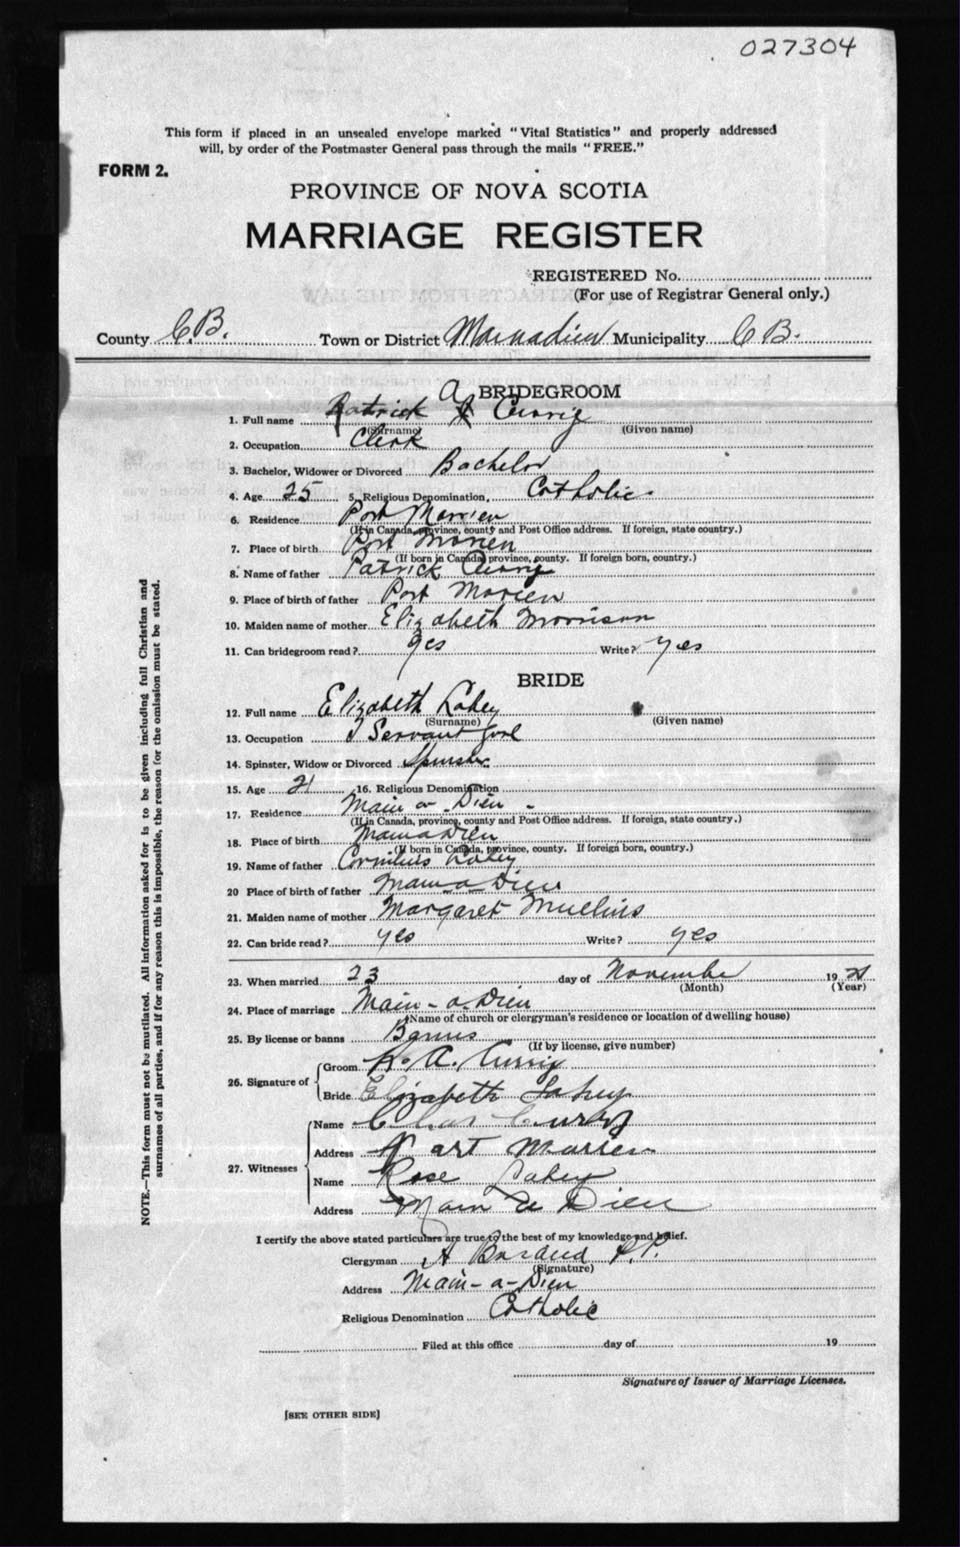 027304
This form if placed in an unsealed envelope marked "Vital Statistics" and properly addressed
will, by order of the Postmaster General pass through the mails "FREE."
FORM 2.
PROVINCE OF NOVA SCOTIA
MARRIAGE REGISTER
REGISTERED No.
(For use of Registrar General only.)
County C.B. Town or District Mainadieu Municipality C B.
BRIDEGROOM
1. Full name Patrick A Currie
(Surname) (Given name)
2. Occupation Clerk
3. Bachelor, Widower or Divorced Bachelor
4. Age 25 5. Religious Denomination, Catholic
6. Residence Port Morien
(If in Canada, province, county and Post Office address. If foreign, state country.)
7. Place of birth Port Morien
(If born in Canada, province, county. If foreign born, country.)
8. Name of father Patrick Currie
9. Place of birth of father Port Morien
10. Maiden name of mother Elizabeth Morrison
11. Can bridegroom read? Yes Write? Yes
BRIDE
12. Full name Elizabeth Lahey
(Surname) (Given name)
13. Occupation Servant Girl
14. Spinster, Widow or Divorced Spinster
15. Age 21 16. Religious Denomination
17. Residence Main-a-Dieu
(If in Canada, province, county and Post Office address. If foreign, state country.)
18. Place of birth Mainadieu
(If born in Canada, province, county. If foreign born, country.)
19. Name of father Cornilius Lahey
20 Place of birth of father Main a Dieu
21. Maiden name of mother Margaret Mullins
22. Can bride read? yes Write? yes
23. When married 23 day of November 1921
(Month) (Year)
24. Place of marriage Main-a-Dieu
(Name of church or clergyman's residence or location of dwelling house)
25. By license or banns Banns
(If by license, give number)
26. Signature of
Groom A. Currie
Bride Elizabeth Lahey
27. Witnesses
Name Chas
Address Port Morien
Name Rose Lahey
Address Main a Dieu
I certify the above stated particulars are true to the best of my knowledge and belief.
Clergyman A P.P.
(Signature)
Address Main-a-Dieu
Religious Denomination Catholic
Filed at this office day of 19
Signature of Issuer of Marriage Licenses.
[SEE OTHER SIDE]
NOTE.—This form must not be mutilated. All information asked for is to be given including full Christian and
surnames of all parties, and if for any reason this is impossible, the reason for the omission must be stated.